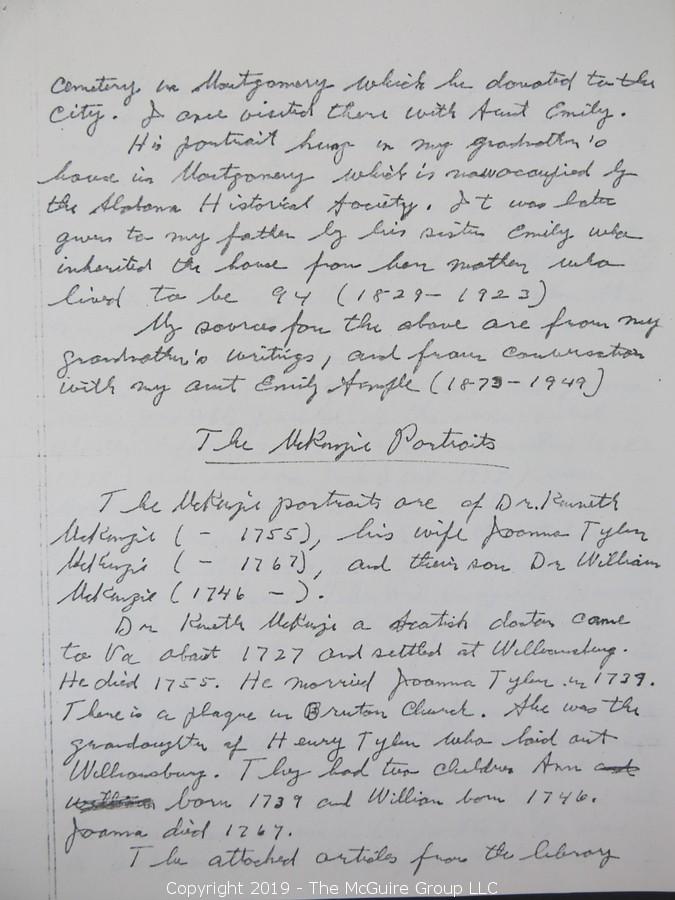 cemetery in Montgomery which he donated to the
City. I once visited there with Aunt Emily.
His portrait hung in my grandmother's
house in Montgomery which is now occupied by
the Alabama Historical Society. It was later
given to my father by his sister Emily who
inherited the house from her mother who
lived to be 94 (1829-1923)
My sources for the above are from my
grandmother's writings, and from conversation
with my aunt Emily (1873-1949)
The McKenzie Portraits
The McKenzie portraits are of Dr. Kenneth
McKenzie ( - 1755), his wife Joanna Tyler
McKenzie ( - 1767), and their son Dr William
McKenzie (1746 - ).
Dr Kenneth McKenzie a Scotish doctor came
to Va about 1727 and settled at Williamsburg.
He died 1755. He married Joanna Tyler in 1739.
There is a plaque in Bruton Church. She was the
grandaughter of Henry Tyler who laid out
Williamsburg. They had two children Ann
born 1739 and William born 1746.
Joanna died 1767.
The attached articles from the library
Copyright 2019 - The McGuire Group LLC